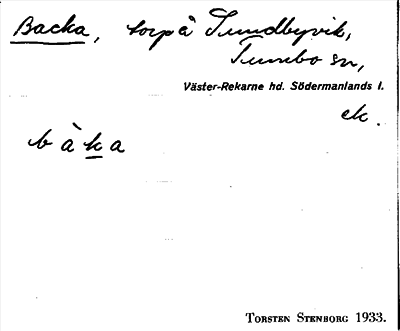 Backa, torp å Sundbyvik,
Tumbo sn,
Väster-Rekarne hd. Södermanlands l.
ek.
b à k a
TORSTEN STENBORG 1933.